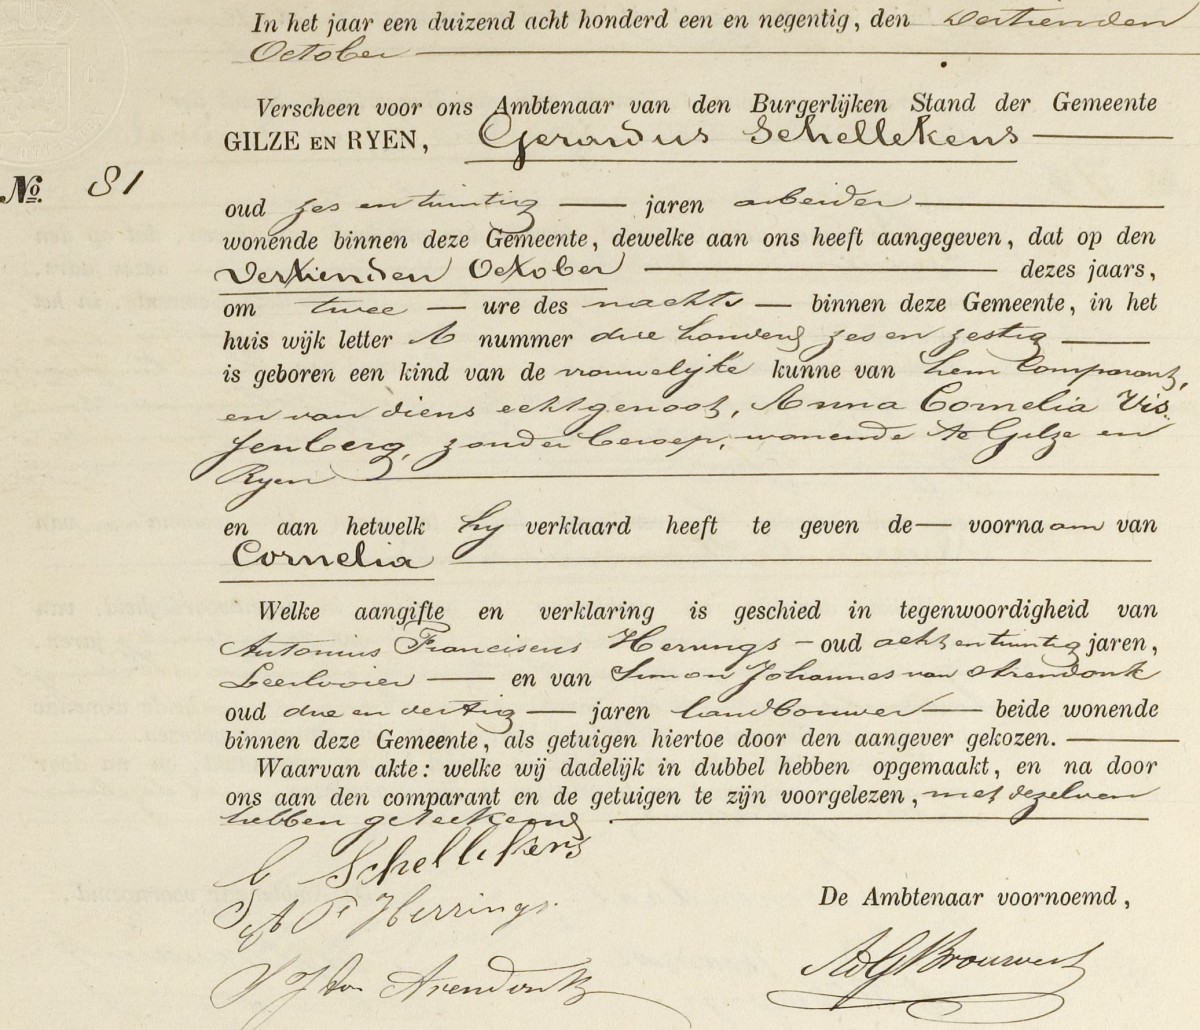 In het jaar een duizend acht honderd een en negentig, den dertienden
October
Verscheen voor ons Ambtenaar van den Burgerlijken Stand der Gemeente
GILZE EN RYEN, Gerardus Schellekens
No. 81
oud zes en twintig jaren arbeider
wonende binnen deze Gemeente, dewelke aan ons heeft aangegeven, dat op den
dertienden October dezes jaars,
om twee ure des nachts binnen deze Gemeente, in het
huis wijk letter A nummer drie honderd zes en zestig
is geboren een kind van de vrouwelijke kunne van hem Comparant,
en van diens echtgenoot, Anna Cornelia Vis„
senberg, zonder beroep, wonende te Gilze en
Ryen
en aan hetwelk hy verklaard heeft te geven de voornaam van
Cornelia
Welke aangifte en verklaring is geschied in tegenwoordigheid van
Antonius Franciscus Herrings - oud acht en twintig jaren,
Leerlooier en van Simon Johannes van Arendonk
oud drie en dertig jaren landbouwer beide wonende
binnen deze Gemeente, als getuigen hiertoe door den aangever gekozen.
Waarvan akte: welke wij dadelijk in dubbel hebben opgemaakt, en na door
ons aan den comparant en de getuigen te zijn voorgelezen, met dezelven
hebben geteekend
G Schellekens
A F Herrings.
De Ambtenaar voornoemd,
S J van Arendonk
Brouwers